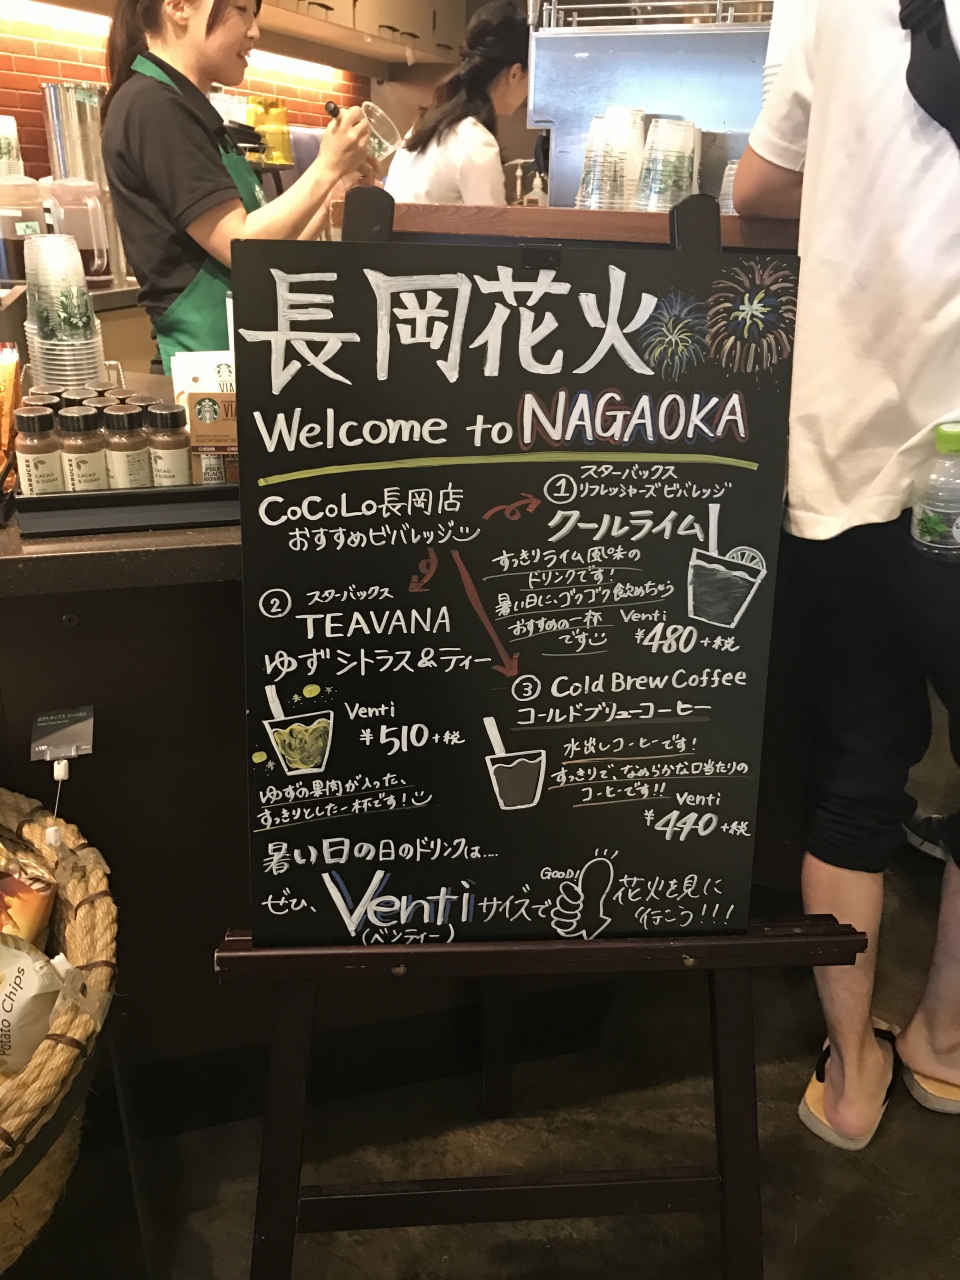 長岡花火
Welcome to NAGAOKA
CoCoLo長岡店
おすすめビバレッジ
① スターバックス
リフレッシャーズビバレッジ
クールライム
すっきりライム風味の
ドリンクです!
暑い日に、ゴクゴク飲めちゃう
おすすめの一杯
です
Venti
¥480+税
② スターバックス
TEAVANA
ゆずシトラス&ティー
Venti
¥510+税
ゆずの果肉が入った、
すっきりとした一杯です!
③ Cold Brew Coffee
コールドブリューコーヒー
水出しコーヒーです!
すっきりで、なめらかな口当たりの
コーヒーです!!
Venti
¥440+税
暑い日の日のドリンクは....
ぜひ、Ventiサイズで
(ベンティー)
GOOD!
花火を見に
行こう!!!
VIA
Potato Chips
CACAO